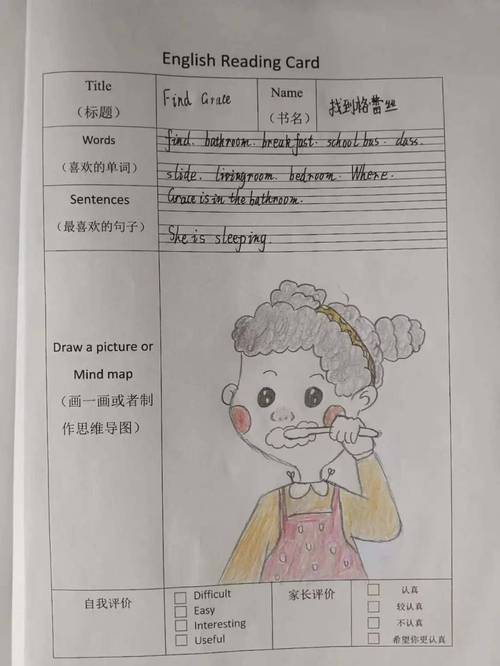 English Reading Card
Title
（标题）
Find Grace
Name
（书名）
找到格蕾丝
Words
（喜欢的单词）
find. bathroom. breakfast. school bus. class.
slide. livingroom. bedroom. Where.
Sentences
（最喜欢的句子）
Grace is in the bathroom.
She is sleeping.
Draw a picture or
Mind map
（画一画或者制
作思维导图）
自我评价
Difficult
Easy
Interesting
Useful
家长评价
认真
较认真
不认真
希望你更认真